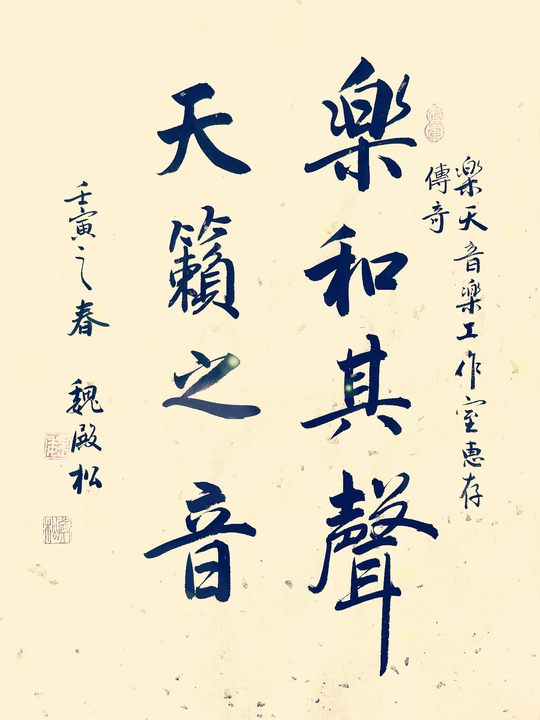 樂天音樂工作室惠存
傳奇
樂和其聲
天籟之音
壬寅之春 魏殿松